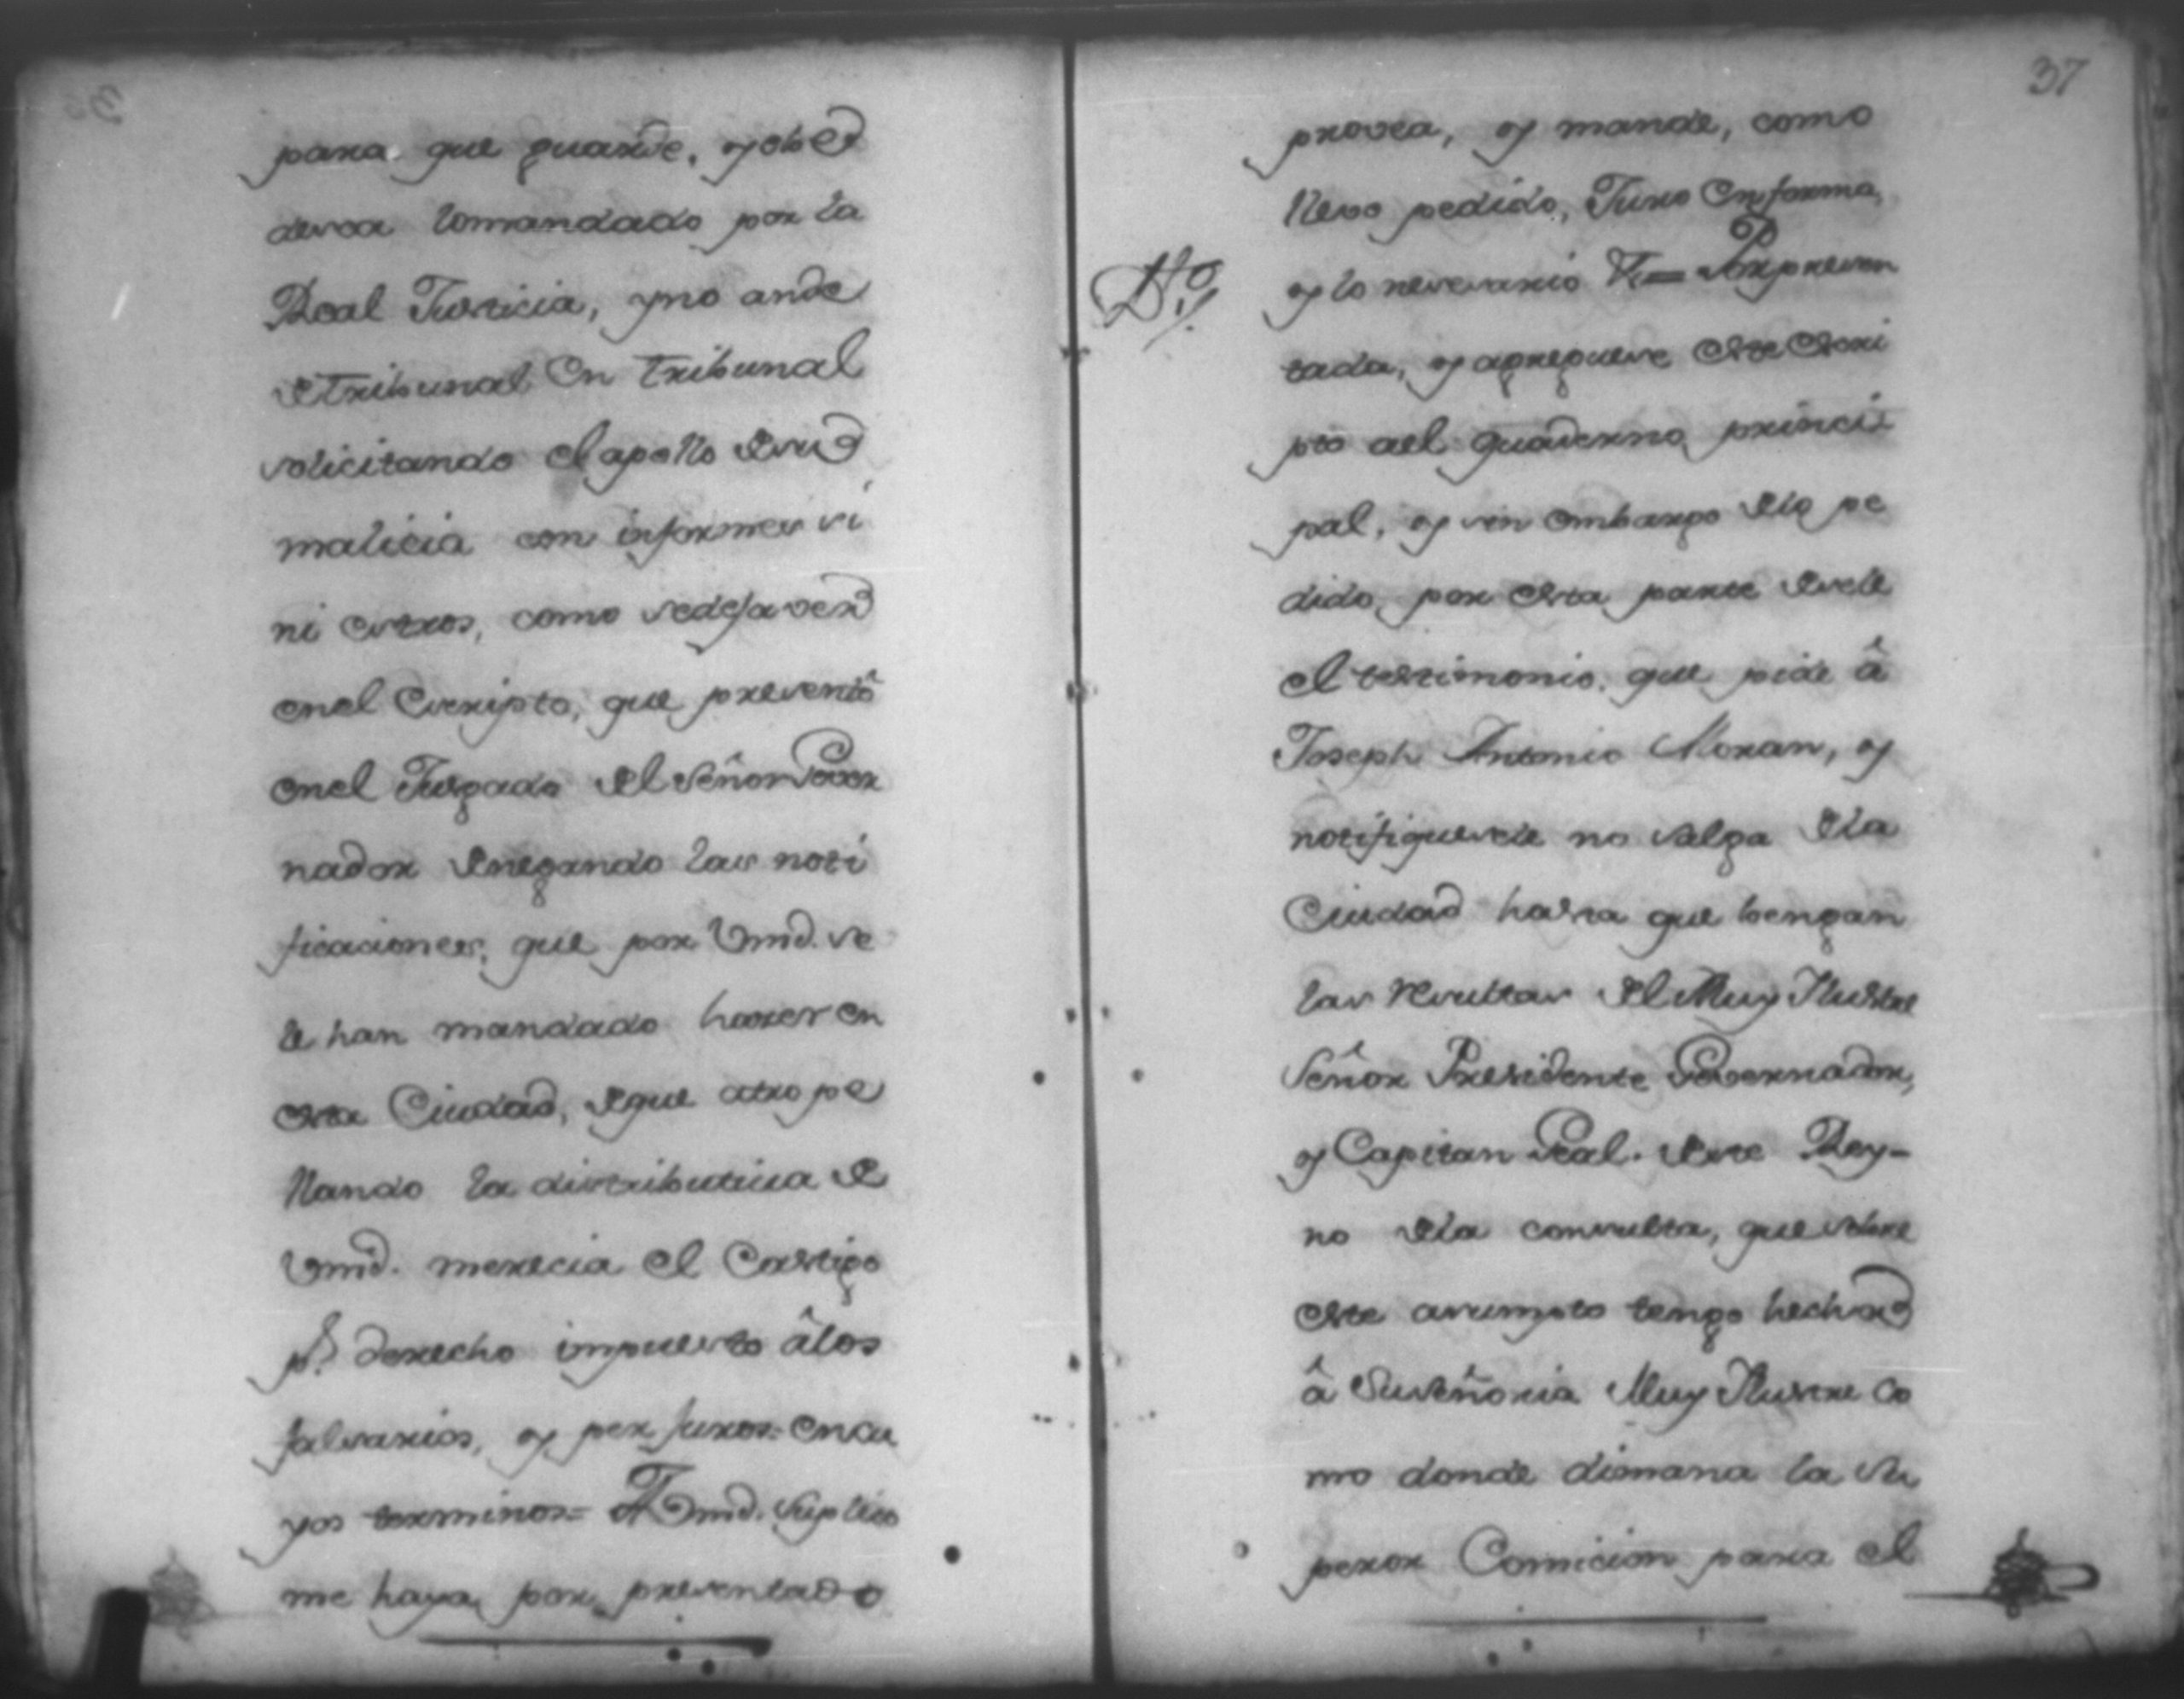 para que guarde, y obed
desca lo mandado por la
Real Justicia, y no ande
de tribunal en tribunal
solicitando el apollo de su
malicia con informes si
ni estros, como se deja ver
en el Escripto, que presentô
en el Jusgado del Señor Gover
nador denegando las noti
ficaciones, que por Vmd. se
le han mandado haser en
esta Ciudad, de que atrope
llando la distributiua de
Vmd. merecia el Castigo
pr. derecho impuesto â los
falsarios, y perjuros= en cu
yos terminos= A Vmd. Suplico
me haya por presentado
37
provea, y mande, como
llevo pedido, Juro en forma,
y lo nesesario Va= Por presen
Dto.
tada, y agreguese este Escri
pto ael quaderno princi
pal, y sin embargo de lo pe
dido, por esta parte desele
el testimonio, que pide â
Joseph Antonio Moran, y
notifiquesele no salga de la
Ciudad hasta que bengan
las resultas del Muy Ilustre
Señor Presidente Governador,
y Capitan Gral. de este Rey-
no de la consulta, que sobre
este asumpto tengo hecha
â Su Señoria Muy Ilustre co
mo donde dimana la Su
perior Comicion para el